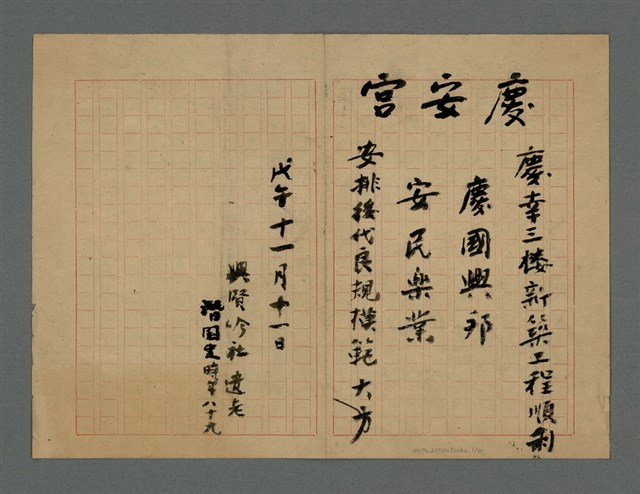 慶安宮
慶幸三楼新築工程順利
慶國興邦
安民樂業
安排後代良規模範大方
戊午十一月十一日
興賢吟社遺老
時年八十九